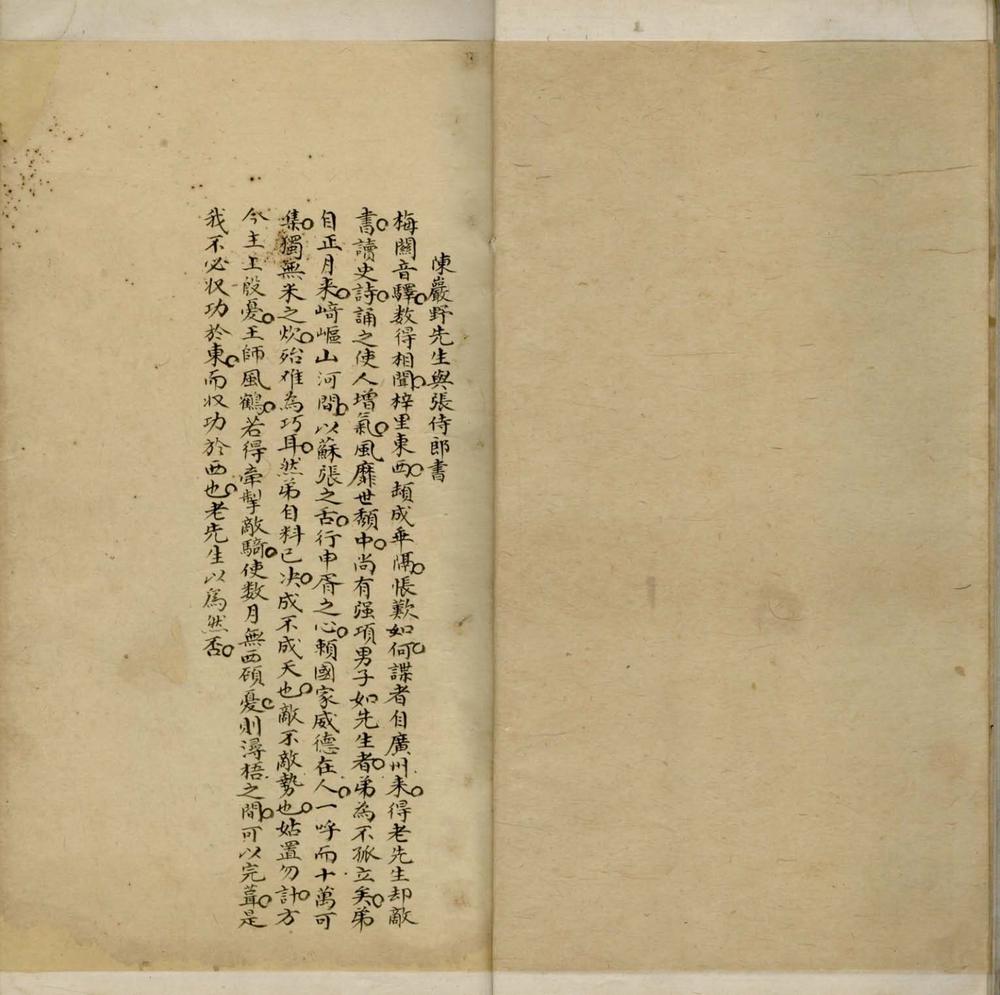 陳巖野先生與張侍郎書
梅關音驛数得相聞梓里東西頡成乖隔悵歎如何諜者自廣州来得老先生却敵
書讀史詩誦之使人增氣風靡世頹中尚有强項男子如先生者弟為不孤立矣弟
自正月来﨑嶇山河間以蘇張之舌行申胥之心賴國家威德在人一呼而十萬可
集獨無米之炊殆难為巧耳然弟自料已决成不成天也敵不敵勢也姑置勿計方
今主上殷憂王師風鶴若得牽掣敵騎使数月無西顧憂則潯梧之間可以完葺是
我不必収功於東而収功於西也老先生以為然否